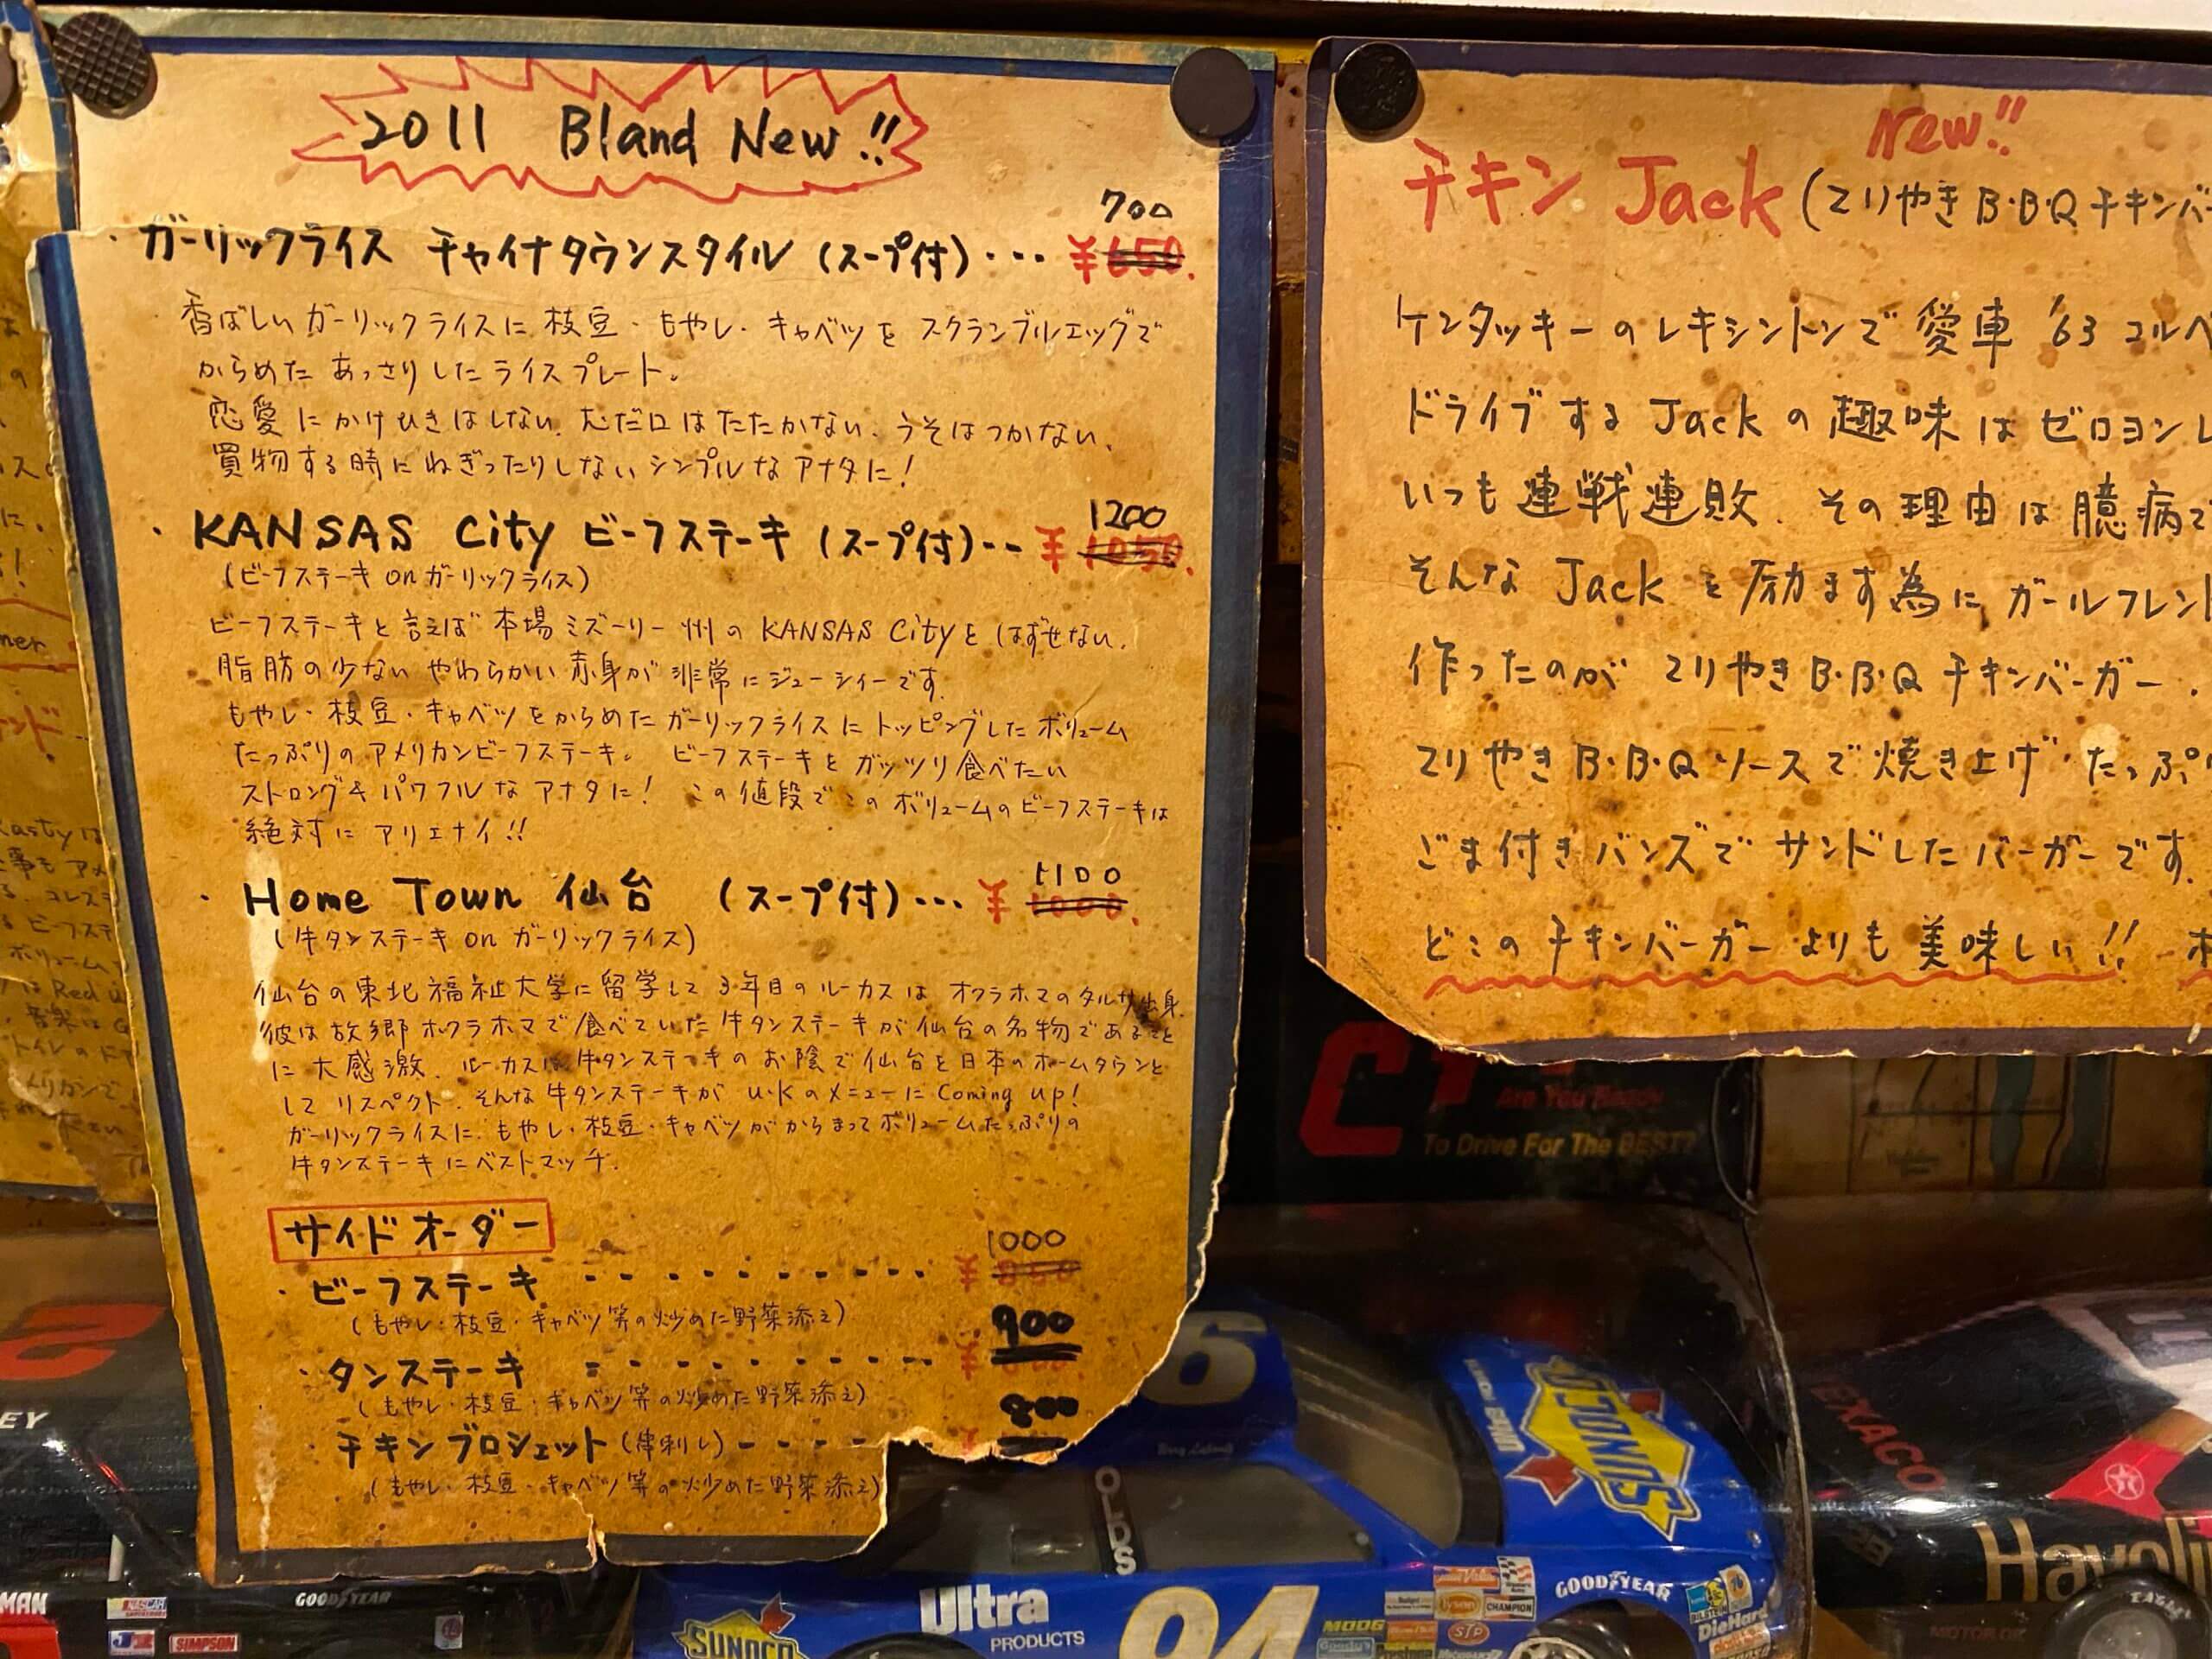 2011 Bland New!!
700
・ガーリックライス チャイナタウンスタイル (スープ付)・・・ ¥650.
香ばしいガーリックライスに枝豆・もやし・キャベツをスクランブルエッグで
からめた あっさりしたライスプレート。
恋愛にかけひきはしない、むだ口はたたかない、うそはつかない、
買物する時にねぎったりしないシンプルなアナタに!
1200
・KANSAS City ビーフステーキ (スープ付)・・ ¥1050.
(ビーフステーキ on ガーリックライス)
ビーフステーキと言えば 本場ミズーリー州の KANSAS Cityをはずせない.
脂肪の少ない やわらかい赤身が非常にジューシィーです.
もやし・枝豆・キャベツをからめたガーリックライスにトッピングしたボリューム
たっぷりのアメリカンビーフステーキ。 ビーフステーキをガッツリ食べたい
ストロング&パワフルなアナタに! この値段でこのボリュームのビーフステーキは
絶対にアリエナイ!!
1100
・Home Town 仙台 (スープ付)・・・ ¥1000.
(牛タンステーキ on ガーリックライス)
仙台の東北福祉大学に留学して3年目のルーカスは オクラホマのタルサ出身.
彼は故郷オクラホマで食べていた牛タンステーキが仙台の名物であること
に大感激. ルーカスは牛タンステーキのお陰で仙台を日本のホームタウンと
してリスペクト. そんな牛タンステーキが U.Kのメニューに Coming up!
ガーリックライスに、もやし・枝豆・キャベツがからまってボリュームたっぷりの
牛タンステーキにベストマッチ.
サイドオーダー
1000
・ビーフステーキ ・・・・・・・・・・ ¥
(もやし・枝豆・キャベツ等の炒めた野菜添え)
900
・タンステーキ ・・・・・・・・・ ¥
(もやし・枝豆・キャベツ等の炒めた野菜添え)
800
・チキンブロシェット(串刺し)・・・・
(もやし・枝豆・キャベツ等の炒めた野菜添え)
New!!
チキン Jack (てりやきB・B・Qチキンバー
ケンタッキーのレキシントンで愛車 '63 コルベ
ドライブする Jackの趣味はゼロヨンレ
いつも連戦連敗、その理由は臆病で
そんな Jackを励ます為に ガールフレンド
作ったのが てりやきB・B・Qチキンバーガー.
てりやきB・B・Qソースで焼き上げ たっぷり
ごま付きバンズでサンドしたバーガーです.
どこのチキンバーガーよりも美味しい!!
Are You Ready
To Drive For The BEST?
6
SUNOCO
OLDS
Ultra
PRODUCTS
94
SUNOCO
GOODYEAR
MOOG
Tyson
CHAMPION
STP
DieHard
TEXACO
Havolin
EAGLE
GOODYEAR
NASCAR
SIMPSON